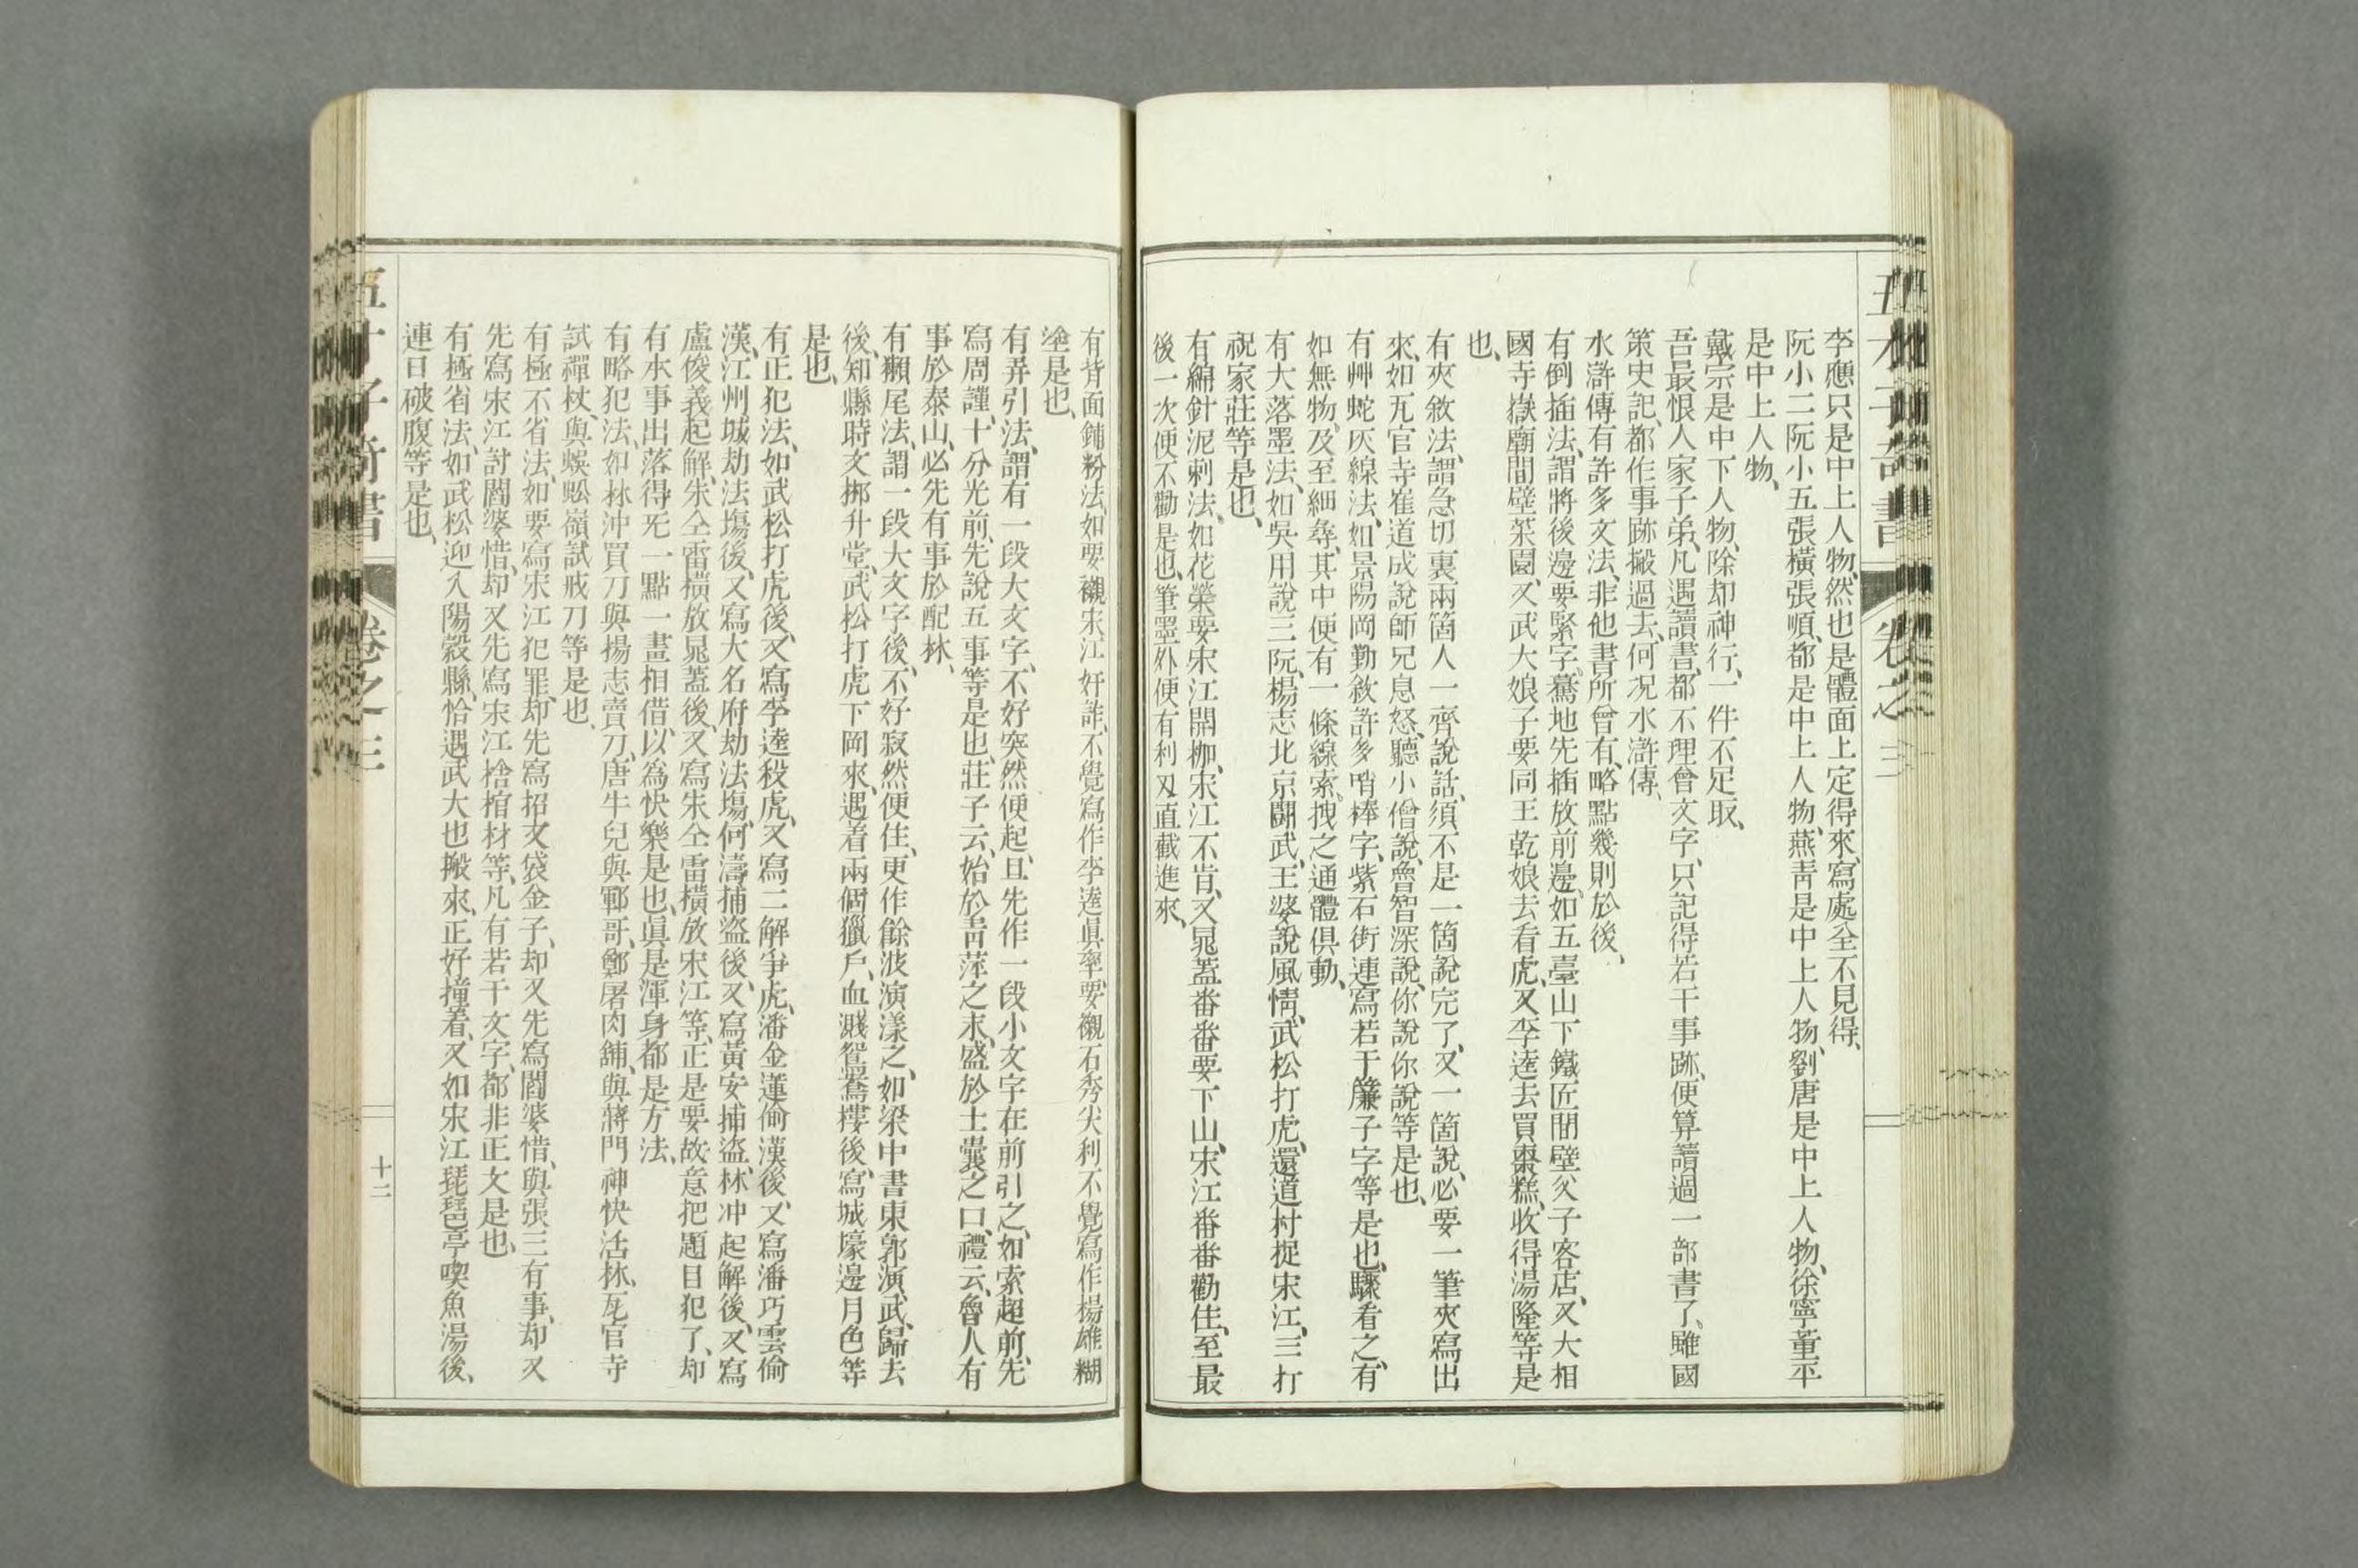 李應只是中上人物、然也是體面上定得來、寫處全不見得、
阮小二阮小五張橫張順、都是中上人物、燕青是中上人物、劉唐是中上人物、徐寧董平
是中上人物、
戴宗是中下人物、除却神行、一件不足取、
吾最恨人家子弟、凡遇讀書、都不理會文字、只記得若干事跡、便算讀過一部書了、雖國
策史記、都作事跡搬過去、何況水滸傳、
水滸傳有許多文法、非他書所曾有、略點幾則於後、
有倒插法、謂將後邊要緊字、驀地先插放前邊、如五臺山下鐵匠間壁父子客店、又大相
國寺嶽廟間壁菜園、又武大娘子要同王乾娘去看虎、又李逵去買棗糕、收得湯隆等是
也、
有夾敘法、謂急切裏兩箇人一齊說話、須不是一箇說完了、又一箇說、必要一筆夾寫出
來、如瓦官寺崔道成說師兄息怒、聽小僧說、魯智深說、你說你說等是也、
有艸蛇灰線法、如景陽岡勤敘許多哨棒字、紫石街連寫若干簾子字等是也、驟看之、有
如無物、及至細尋、其中便有一條線索、拽之通體俱動、
有大落墨法、如吳用說三阮、楊志北京鬬武、王婆說風情、武松打虎、還道村捉宋江、三打
祝家莊等是也、
有綿針泥刺法、如花榮要宋江開枷、宋江不肯、又晁蓋番番要下山、宋江番番勸住、至最
後一次便不勸是也、筆墨外便有利刄直截進來、
五才子奇書
卷之三
有背面鋪粉法、如要襯宋江奸詐、不覺寫作李逵眞率、要襯石秀尖利、不覺寫作楊雄糊
塗是也、
有弄引法、謂有一段大文字、不好突然便起、且先作一段小文字在前引之、如索超前、先
寫周謹、十分光前、先說五事等是也、莊子云、始於青萍之末、盛於土囊之口、禮云、魯人有
事於泰山、必先有事於配林、
有獺尾法、謂一段大文字後、不好寂然便住、更作餘波演漾之、如梁中書東郭演武、歸去
後、知縣時文彬升堂、武松打虎下岡來、遇着兩個獵戶、血濺鴛鴦樓後、寫城壕邊月色等
是也、
有正犯法、如武松打虎後、又寫李逵殺虎、又寫二解爭虎、潘金蓮偷漢後、又寫潘巧雲偷
漢、江州城劫法塲後、又寫大名府劫法塲、何濤捕盜後、又寫黃安捕盜、林冲起解後、又寫
盧俊義起解、朱仝雷橫放晁蓋後、又寫朱仝雷橫放宋江等、正是要故意把題目犯了、却
有本事出落得无一點一畫相借、以爲快樂是也、眞是渾身都是方法、
有略犯法、如林沖買刀與揚志賣刀、唐牛兒與鄆哥、鄭屠肉舖、與蔣門神快活林、瓦官寺
試禪杖、與蜈蚣嶺試戒刀等是也、
有極不省法、如要寫宋江犯罪、却先寫招文袋金子、却又先寫閻婆惜、與張三有事、却又
先寫宋江討閻婆惜、却又先寫宋江捨棺材等、凡有若干文字、都非正文是也、
有極省法、如武松迎入陽穀縣、恰遇武大也搬來、正好撞着、又如宋江琵琶亭喫魚湯後、
連日破腹等是也、
五才子奇書
卷之三
十二